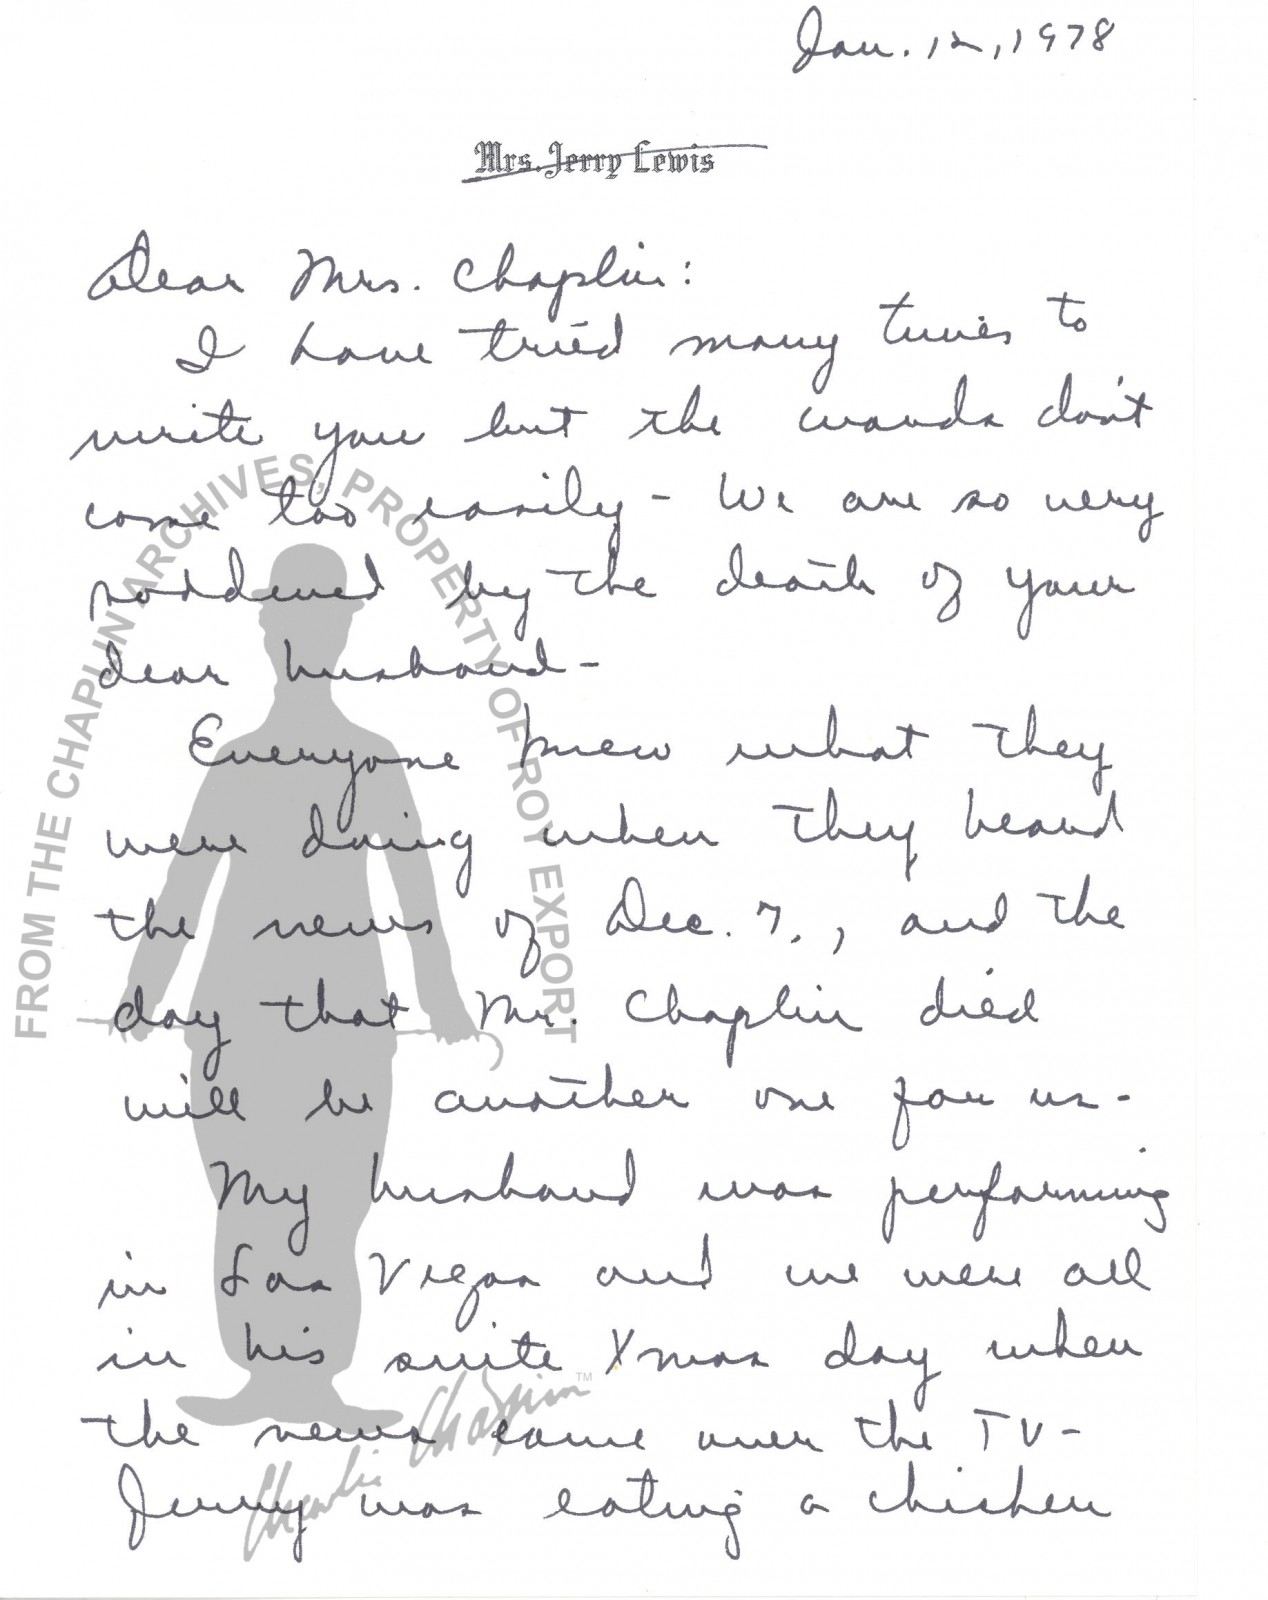 Jan. 12, 1978
Mrs. Jerry Lewis
Dear Mrs. Chaplin:
I have tried many times to
write you but the words don't
come too easily - We are so very
saddened by the death of your
dear husband -
Everyone knew what they
were doing when they heard
the news of Dec. 7., and the
day that Mr. Chaplin died
will be another one for us -
My husband was performing
in Las Vegas and we were all
in his suite Xmas day when
the news came over the TV -
Jerry was eating a chicken
FROM THE CHAPLIN ARCHIVES, PROPERTY OF ROY EXPORT
Charlie Chaplin TM